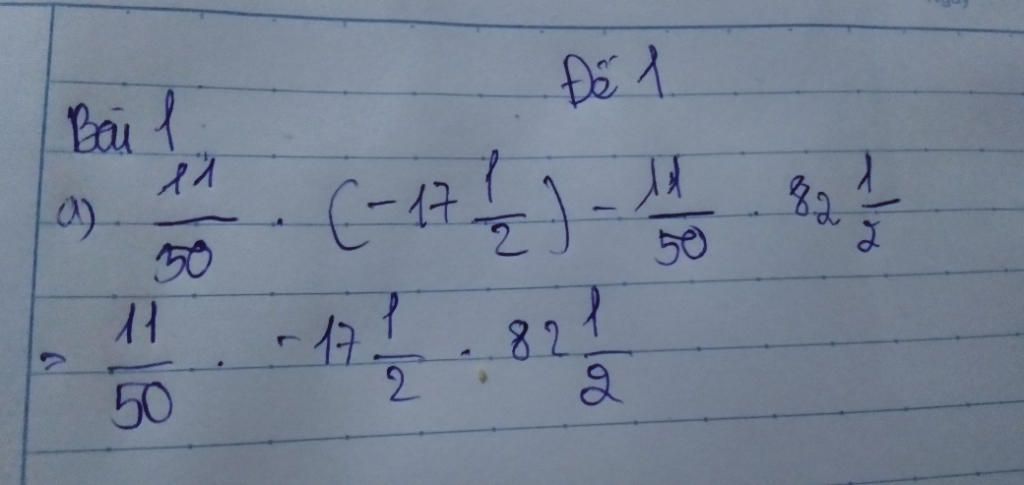 Đề 1
Bài 1
a) 11/50 . (-17 1/2) - 11/50 . 82 1/2
= 11/50 . -17 1/2 . 82 1/2